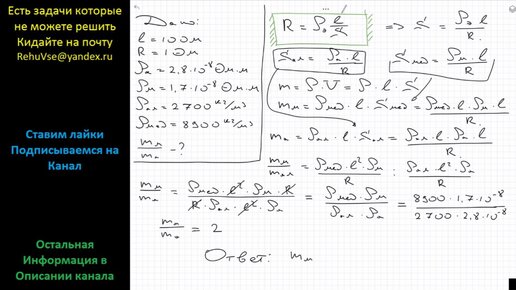 Есть задачи которые
не можете решить
Кидайте на почту
RehuVse@yandex.ru
Ставим лайки
Подписываемся на
Канал
Остальная
Информация в
Описании канала
Дано:
l = 100м
R = 1 Ом
ρа = 2,8·10⁻⁸ Ом·м
ρм = 1,7·10⁻⁸ Ом·м
ρал = 2700 кг/м3
ρмед = 8900 кг/м3
mм/mа - ?
R = ρэ l/S => S = ρэ l/R.
Sал = ρа·l/R Sмед = ρм·l/R
m = ρ·V = ρ·l·S
mм = ρмед·l·Sмед = ρмед·l·ρм·l/R
mа = ρал·l·Sал = ρал·l·ρа·l/R
mм/mал = ρмед·l²·ρм/R : ρал·l²·ρа/R
mм/mа = ρмед·l²·ρм·R/R·ρал·l²·ρа = ρмед·ρм/ρал·ρа = 8900·1,7·10⁻⁸/2700·2,8·10⁻⁸
mм/mа = 2
Ответ: mм